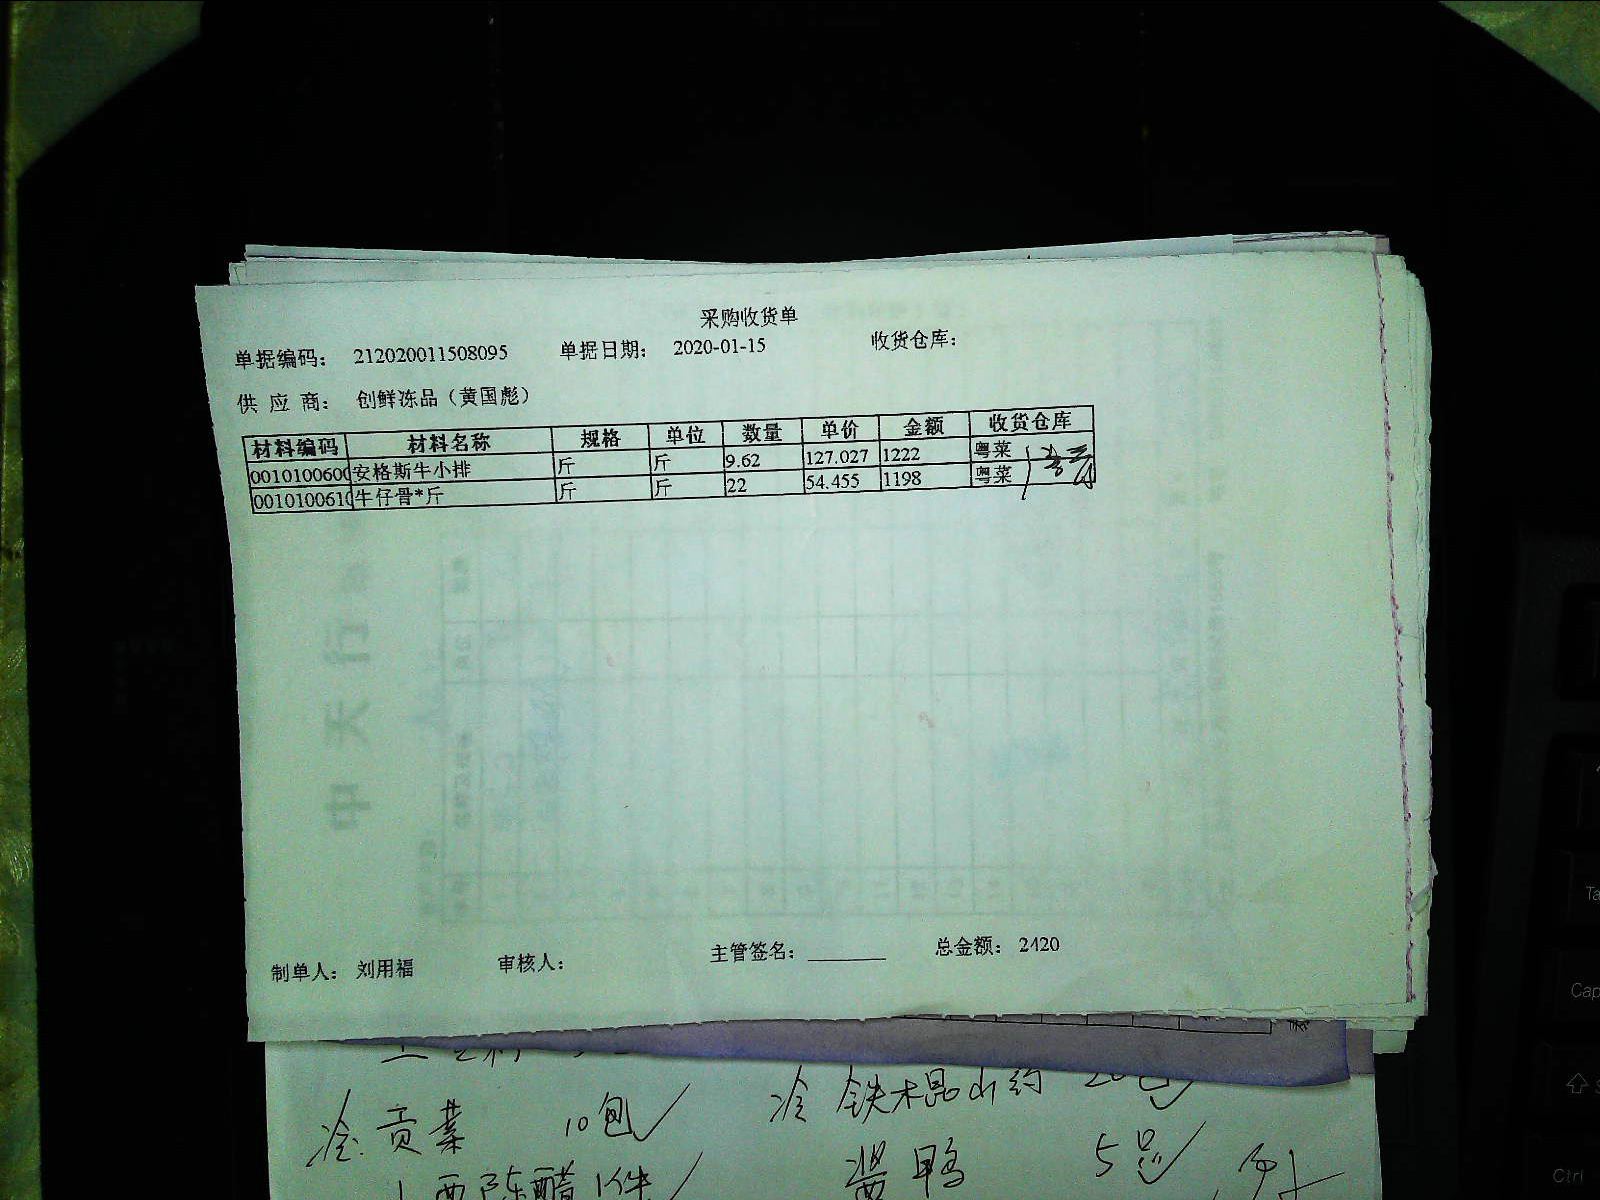 采购收货单
单据编码： 212020011508095 单据日期： 2020-01-15 收货仓库：
供 应 商： 创鲜冻品（黄国彪）
材料编码 材料名称 规格 单位 数量 单价 金额 收货仓库
0010100600 安格斯牛小排 斤 斤 9.62 127.027 1222 粤菜
0010100610 牛仔骨*斤 斤 斤 22 54.455 1198 粤菜
中天行
制单人： 刘用福 审核人： 主管签名： 总金额： 2420
冷 贡菜 10包 冷 铁木昆山约 20包
山西陈醋 1件 酱鸭 5只
Ta
Cap
Ctrl